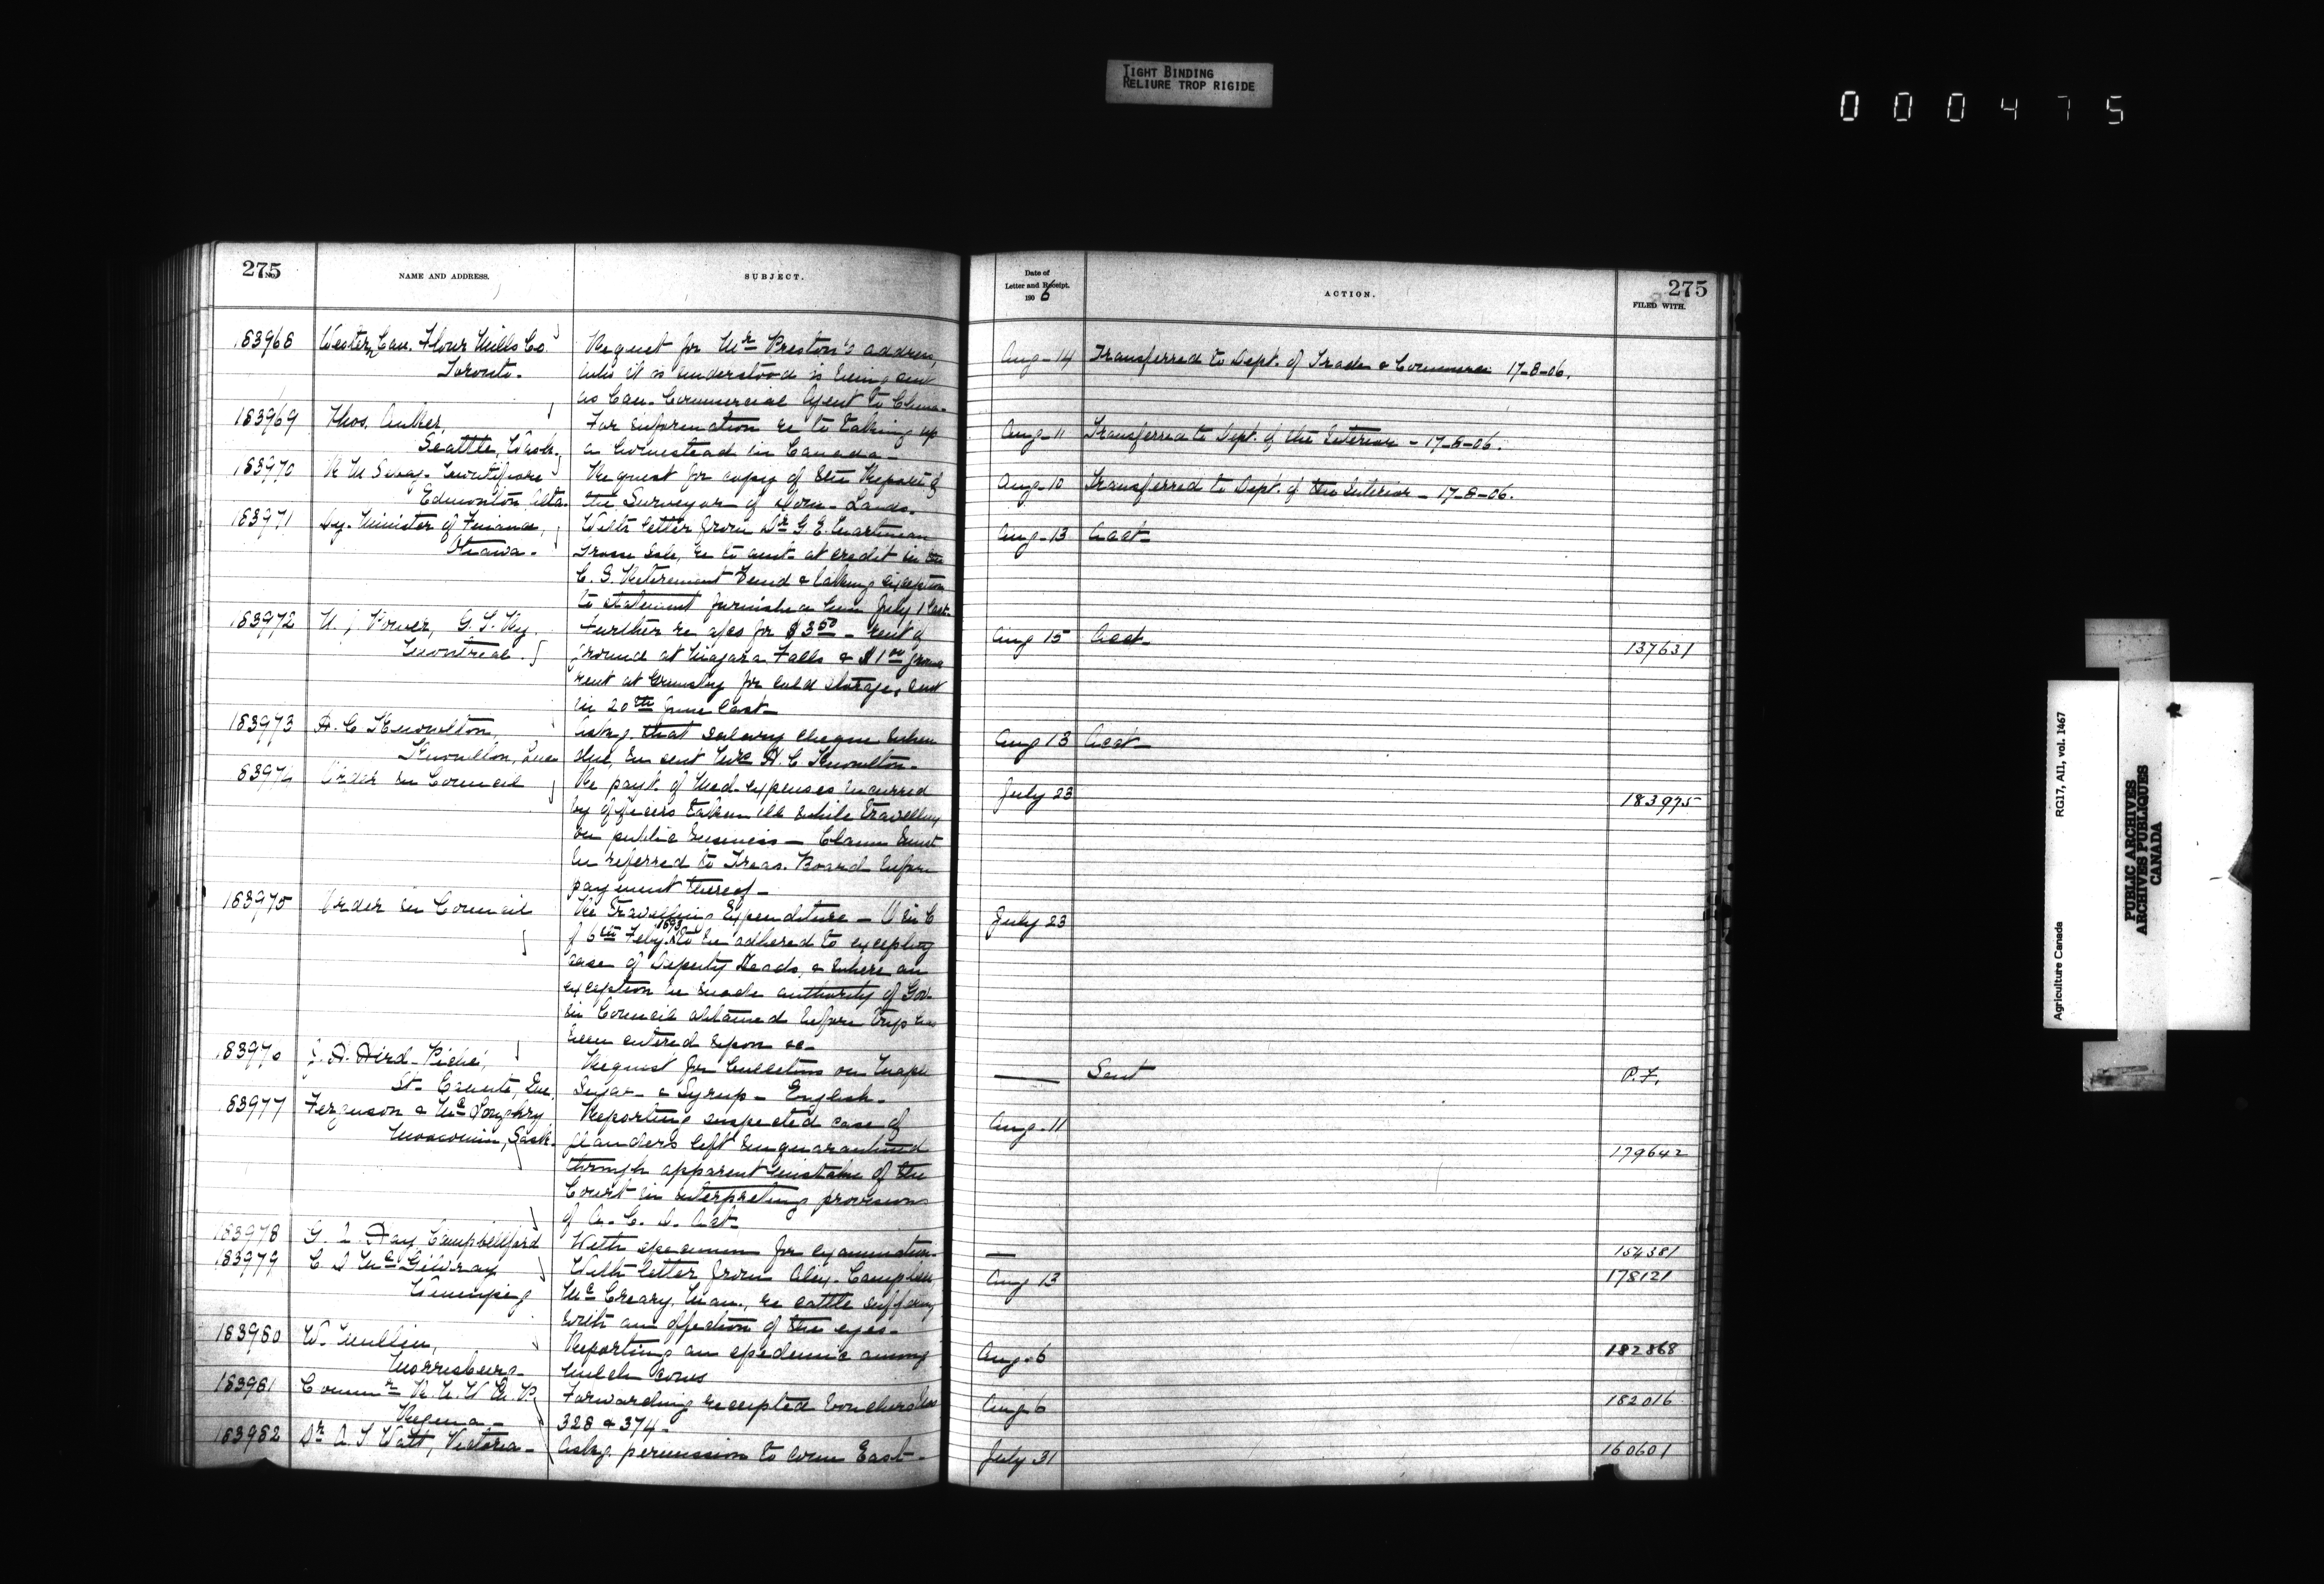 TIGHT BINDING
RELIURE TROP RIGIDE
000475
275
No.
NAME AND ADDRESS.
SUBJECT.
Date of
Letter and Receipt.
1906
ACTION.
275
FILED WITH.
183968 Western Can. Flour Mills Co. Request for Mr Preston's address,
Toronto. who it is understood is being sent
as Can. Commercial Agent to China.
Aug-14 Transferred to Dept. of Trade & Commerce 17-8-06.
183969 Thos. For information re to taking up
Seattle, Wash. a homestead in Canada-
Aug-11 Transferred to Dept. of the Interior - 17-8-06.
183970 Request for copy of the Report of
Edmonton Alta. the Surveyor of Dom. Lands.
Aug-10 Transferred to Dept. of the Interior - 17-8-06.
183971 Dy. Minister of Finance, With letter from Dr G. E. Martineau
Ottawa. Grosse Isle, re to amt. at credit in the
C. S. Retirement Fund & taking exception
to statement furnished him July 1 last.
Aug-13 Acct-
183972 Power, G. T. Ry. Further re a/cs for $3.50 - rent of
Montreal. ground at Niagara Falls & $1.00 ground
rent at Grimsby for cold storage, sent
in 20th June last-
Aug 15 Acct- 137631
183973 H. C. Knowlton, Askg. that salary cheque when
Knowlton, Que. due, be sent Mrs H. C. Knowlton.
Aug 13 Acct-
183974 Order in Council Re payt. of Med. expenses incurred
by officers taken ill while travelling
on public business - Claim must
be referred to Treas. Board before
payment thereof-
July 23 183975
183975 Order in Council Re Travelling Expenditure - O in C
of 6th Feby. 1893 to be adhered to excepting
case of Deputy Heads, & where an
exception be made authority of Gov.
in Council obtained before trip has
been entered upon &c-
July 23
183976 J. A. Aird Request for bulletins on Maple
St. Que. Sugar & Syrup - English.
Sent P.F.
183977 Ferguson & Reporting suspected case of
Moosomin, Sask. glanders left unquarantined
through apparent mistake of the
Court in interpreting provisions
of A. C. D. Act-
Aug-11 179642
183978 G. L. Hay Campbellford With specimen for examination.
154381
183979 C. D. McGilvray With letter from Alex. Campbell
Winnipeg McCreary, Man., re cattle suffering
with an affection of the eyes.
Aug 13 178121
183980 W. Mullin, Reporting an epidemic among
Morrisburg- milch cows
Aug. 6 182868
183981 Commr R. N. W. M. P. Forwarding receipted vouchers Nos
Regina - 328 & 374.
Aug 6 182016
183982 Dr A. T. Watt, Victoria - Askg. permission to come East-
July 31 160601
Agriculture Canada
RG17, AII, vol. 1467
PUBLIC ARCHIVES
ARCHIVES PUBLIQUES
CANADA